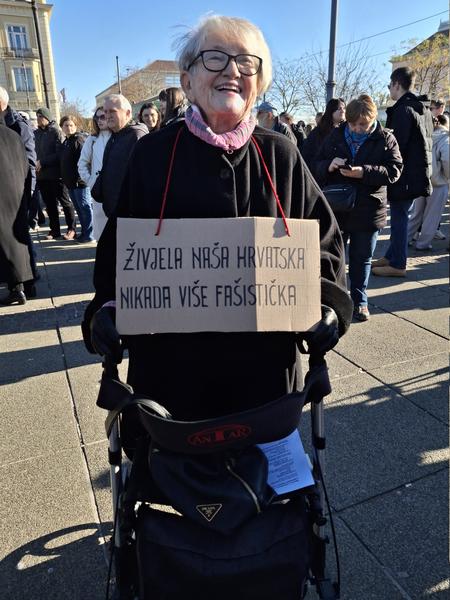 ŽIVJELA NAŠA HRVATSKA
NIKADA VIŠE FAŠISTIČKA
ANTAR
PRADA